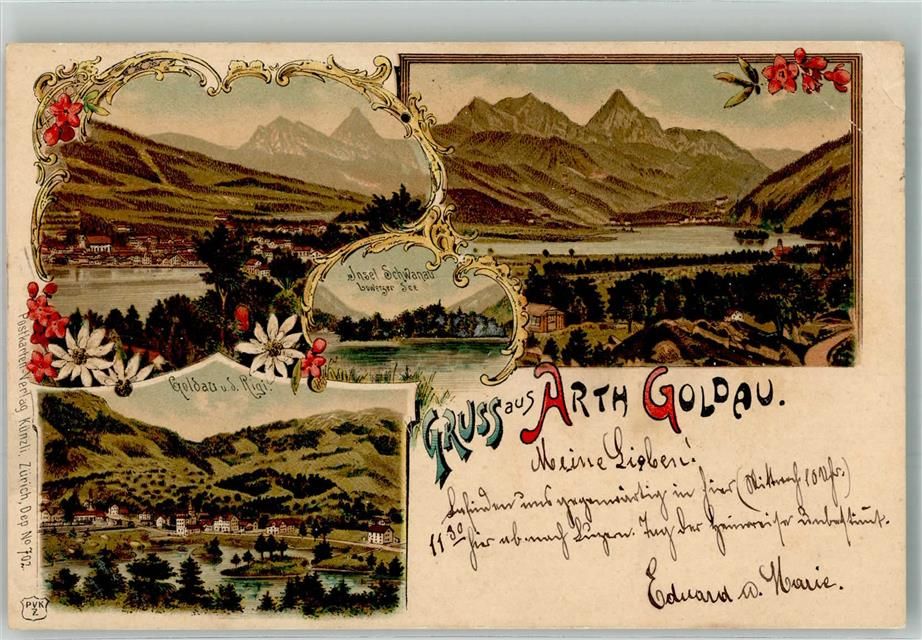 Insel Schwanau
Lowerzer See
Goldau u. d. Rigi.
GRUSS aus ARTH GOLDAU.
Meine Lieben!
Befinden uns gegenwärtig in hier (Mittwoch 10 Uhr.)
11 30 hier ab nach Luzern. Tag der Heimreise unbestimmt.
Eduard u. Marie.
Postkarten-Verlag Künzli, Zürich, Dep. No 702.
PVK
Z